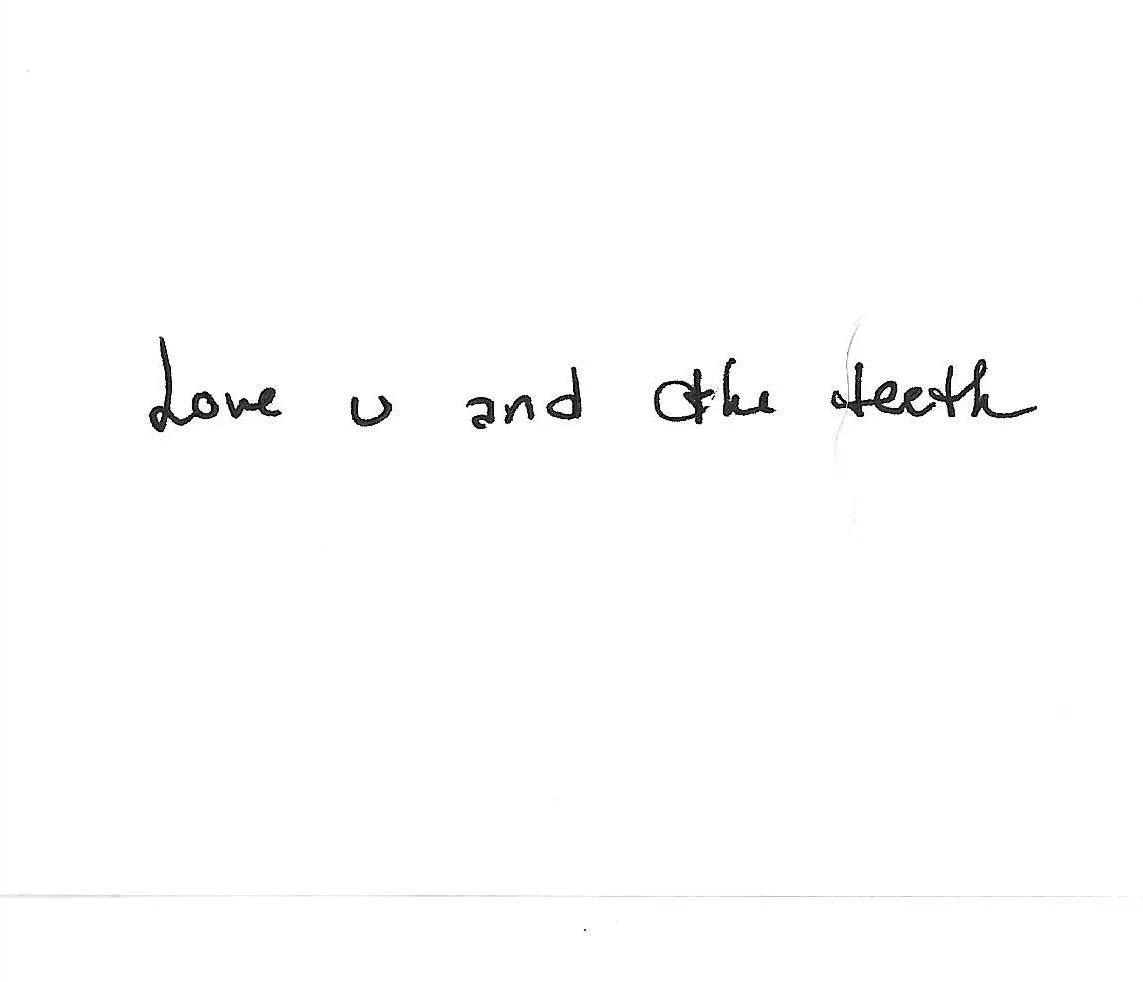 Love u and the teeth